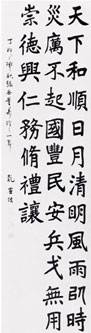 天下和順日月清明風雨以時
災厲不起國豐民安兵戈無用
崇德興仁務脩禮讓